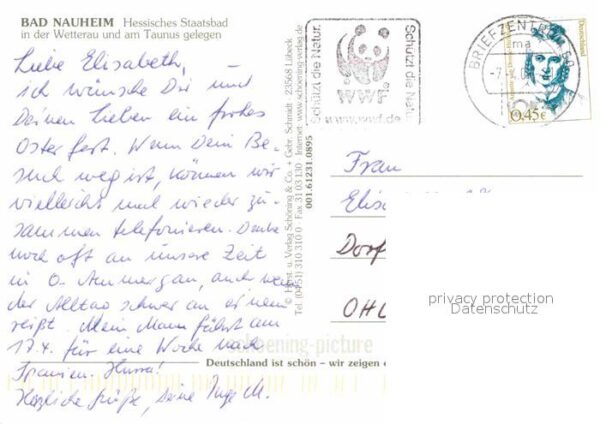 BAD NAUHEIM Hessisches Staatsbad
in der Wetterau und am Taunus gelegen
Liebe Elisabeth,
ich wünsche Dir und
Deinen Lieben ein frohes
Osterfest. Wenn Dein Be-
such weg ist, können wir
vielleicht mal wieder zu-
sammen telefonieren. Denke
noch oft an unsere Zeit
in O. Ammergau, auch wenn
der Alltag schwer an einem
reißt. Mein Mann fährt am
17.4. für eine Woche nach
Spanien. Hurra!
Herzliche Grüße, Deine Inge M.
© Horst u. Verlag Schöning & Co. + Gebr. Schmidt 23568 Lübeck
Tel. (0451) 310 310 0 · Fax 31 03 130 Internet: www.schoening-verlag.de
001.61231.0895
Schützt die Natur.
WWF
www.wwf.de
Schützt die Natur
BRIEFZENTRUM 60
ma
Deutschland
0,45€
Frau
Dorf
privacy protection
Datenschutz
schoening-picture
Deutschland ist schön – wir zeigen